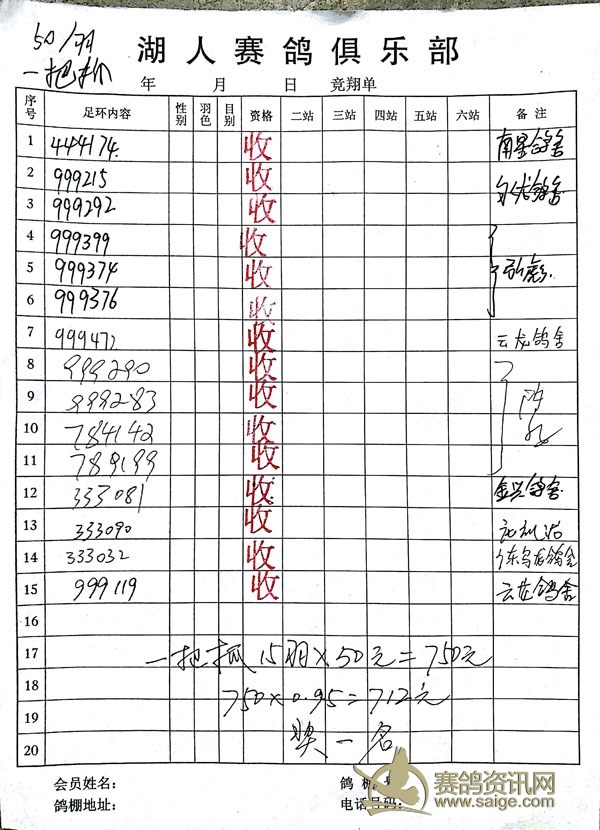 50/羽
一把抓
湖人赛鸽俱乐部
年 月 日 竞翔单
序号 足环内容 性别 羽色 目别 资格 二站 三站 四站 五站 六站 备注
1 444174. 收 南星鸽舍
2 999215 收
3 999292 收
4 999399 收
5 999374 收
6 999376 收
7 999471 收 云龙鸽舍
8 999290 收
9 999283 收
10 784142 收
11 789199 收
12 333081 收 金兴鸽舍
13 333090 收
14 333032 收
15 999119 收 云龙鸽舍
16
17 一把抓 15羽×50元=750元
18 750×0.95=712元
19 奖一名
20
会员姓名: 鸽棚号:
鸽棚地址: 电话号码:
赛鸽资讯网
www.saige.com